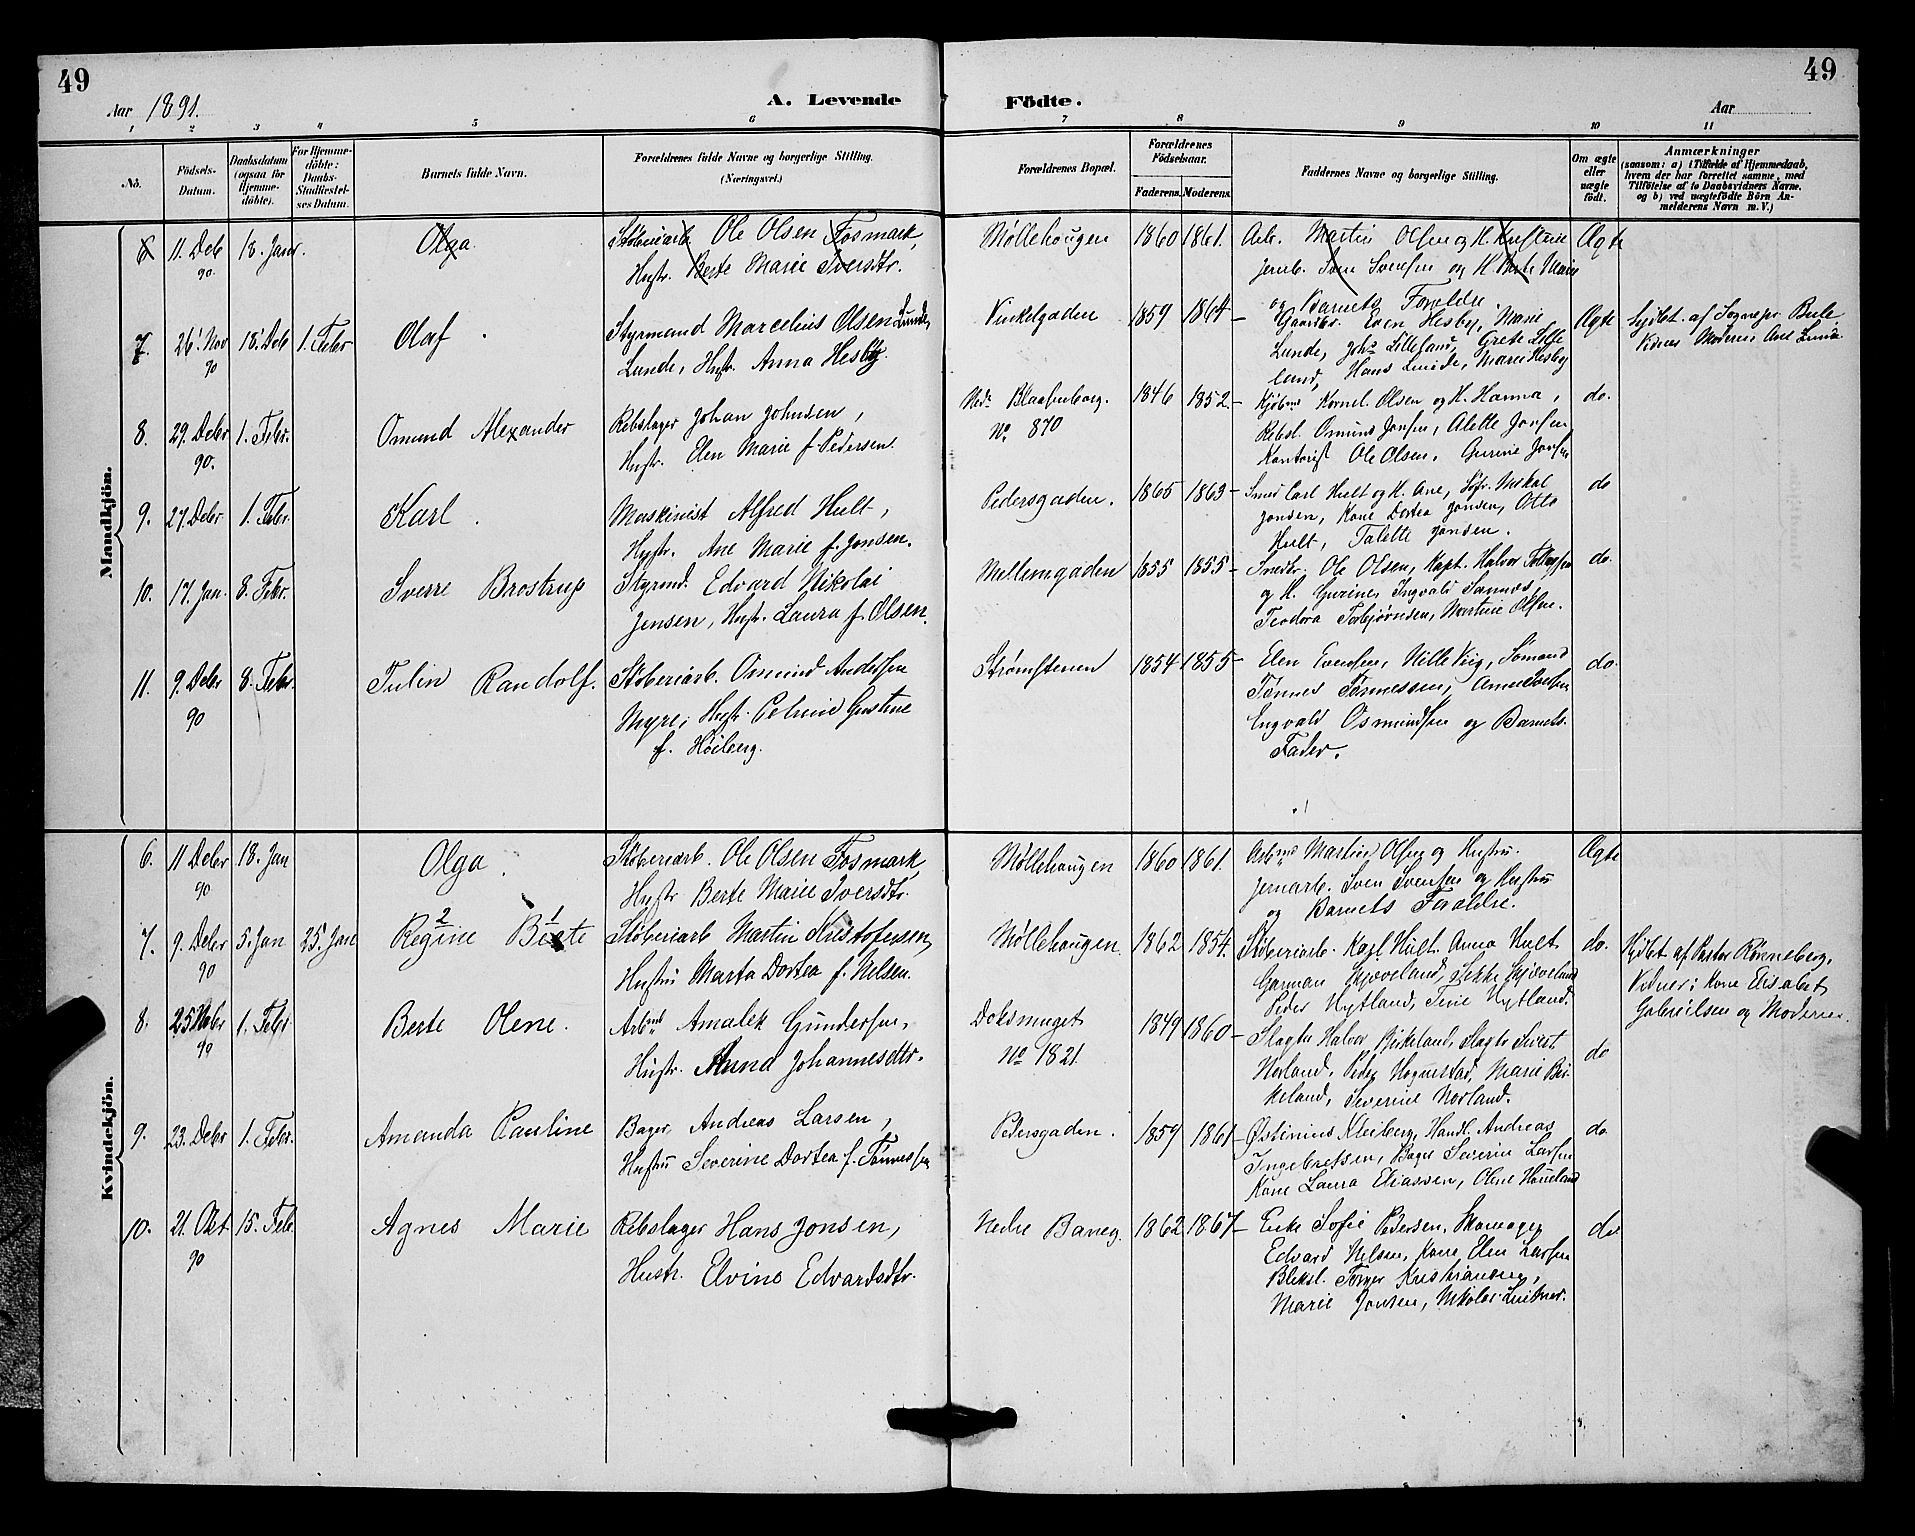 49
49
Aar 1891.
A. Levende
Födte.
Aar
1 2 3 4 5 6 7 8 9 10 11
Nö.
Födsels-
Datum.
Daabsdatum
(ogsaa for
Hjemme-
döbte).
For Hjemme-
döbte:
Daabs-
Stadfæstel-
ses Datum.
Barnets fulde Navn.
Forældrenes fulde Navne og borgerlige Stilling.
(Næringsvei.)
Forældrenes Bopæl.
Forældrenes
Födselsaar.
Faderens. Moderens.
Faddernes Navne og borgerlige Stilling.
Om ægte
eller
uægte
födt.
Anmærkninger
(saasom: a) i Tilfælde af Hjemmedaab,
hvem der har forrettet samme, med
Tilföielse af to Daabsvidners Navne,
og b) ved uægtefödte Börn An-
melderens Navn m. V.)
Mandkjön.
6 11. Debr 18. Janr. Olga. Støberiarb. Ole Olsen Fosmark, Møllehougen 1860 1861. Arb. Martin Olsen og H. Ægte
90 Hustr. Berte Marie Iversdtr. Jernb. Sven Svensen og H. Berte Marie
og Barnets Forældre.
7. 26. Nov 18. Deb 1. Febr Olaf. Styrmand Marcelius Olsen Lunde, Vinkelgaden 1859 1864 – Gaardbr. Even Hesby, Marie Ægte Hjdbt. af Sognepr.
90 Lunde, Hustr. Anna Hesby Lunde, Johs Lilleland, Grete Lille
land, Hans Lunde, Marie Hesby
8. 29. Debr 1. Febr. Omund Alexander Rebslager Johan Johnsen, Nedr. Blaasenborg. 1846 1852 – Kjøbmd Kornel. Olsen og H. Hanna, do.
90. Hustr. Elen Marie f. Pedersen. No. 870 Rebsl. Omund Jonsen, Alette Jonsen
Kontorist Ole Olsen, Gurine Jonsen
9. 27. Debr 1. Febr. Karl. Maskinist Alfred Hult, Pedersgaden. 1865 1863 – Smed Carl Hult og H. Ane, Mikal do
Hustr. Ane Marie f. Jonsen. Jonsen, Kone Dortea Jonsen, Otto
Hult, Talette Jonsen.
10. 17. Jan. 8. Febr. Sverre Brostrup Styrmd. Edvard Nikolai Mellemgaden 1855 1855 – Snedkr. Ole Olsen, Kapt. Halvor do.
Jensen, Hustr. Laura f. Olsen. og H. Gurine, Ingvald Samnes,
Teodora Torbjørnsen, Martine Olsen.
11. 9. Debr 8. Febr. Tulin Randolf. Støberiarb. Omund Andersen Strømstenen 1854 1855 – Elen Evensen, Sømand do.
90 Myre, Hustr. Gustine Tønnes Tønnessen,
f. Høiberg. Engvald Osmundsen og Barnets
Fader.
Kvindekjön.
6. 11 Debr 18. Jan Olga. Støberiarb. Ole Olsen Fosmark, Møllehougen 1860 1861. Arbmd Martin Olsen og Hustru. Ægte
90 Hustr Berte Marie Iversdtr. Jernarb. Sven Svensen og Hustru
og Barnets Forældre.
7. 9. Debr 5. Jan 25. Jan Regine Berte Støberiarb Martin Kristofersen, Møllehougen 1862 1854. Støberiarb. Karl Hult. Anna Hult do. Hjdbt af Pastor Rønneberg.
2 1
90 Hustru Marta Dortea f. Nelsen. Garman Gjøveland,
Peder Nytland, Tine Nytland. Vidner: Kone Elisabet
Gabrielsen og Moderen.
8. 1. Febr Berte Olene. Arbmd Amalek Gundersen, Doksmuget 1849 1860 – Slagter Halvor Birkeland, Slagter Sivert do
90 Hustr. Anna Johannesdtr. No 1821. Norland, Peder Hognestad, Marie Bir-
keland, Severine Norland.
9. 23. Debr 1. Febr. Amanda Pauline Bager Andreas Larsen, Pedersgaden. 1859 1861 – Østinius Kleiberg, Handl. Andreas do.
Hustru Severine Dortea f. Tønnessen Ingebretsen, Bager Severin Larsen
Kone Laura Eliassen, Olene Haueland
10. 21. Okt 15. Feb. Agnes Marie Rebslager Hans Jonsen, Nedre Baneg. 1862 1867 – Enke Sofie Pedersen, Skomager do
90 Hustr. Elvine Edvardsdtr. Edvard Nelsen, Kone Elen Larsen
Bliksl. Kristiansen,
Marie Jonsen, Nikolai Lintner.